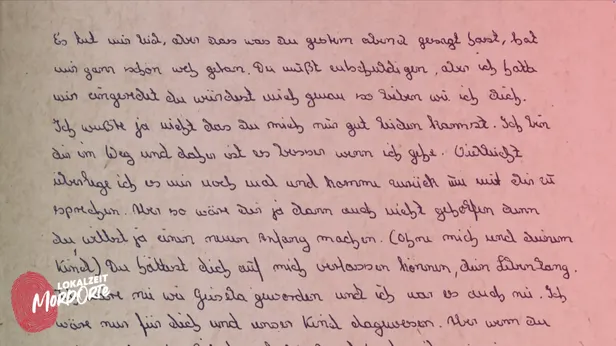 Es tut mir leid, aber das was du gestern abend gesagt hast, hat
mir ganz schön weh getan. Du mußt entschuldigen, aber ich hatte
mir eingeredet du würdest mich genau so lieben wie ich dich.
Ich wußte ja nicht das du mich nur gut leiden kannst. Ich bin
dir im Weg und daher ist es besser wenn ich gehe. Vielleicht
überlege ich es mir noch mal und komme zurück um mit dir zu
sprechen. Aber so wäre dir ja dann auch nicht geholfen denn
du willst ja einen neuen Anfang machen. (Ohne mich und deinem
Kind) Du hättest dich auf mich verlassen können, dein Leben lang.
nie wie Gisela geworden und ich war es auch nie. Ich
wäre nur für dich und unser Kind dagewesen. Aber wenn du
LOKALZEIT
MORDORTE